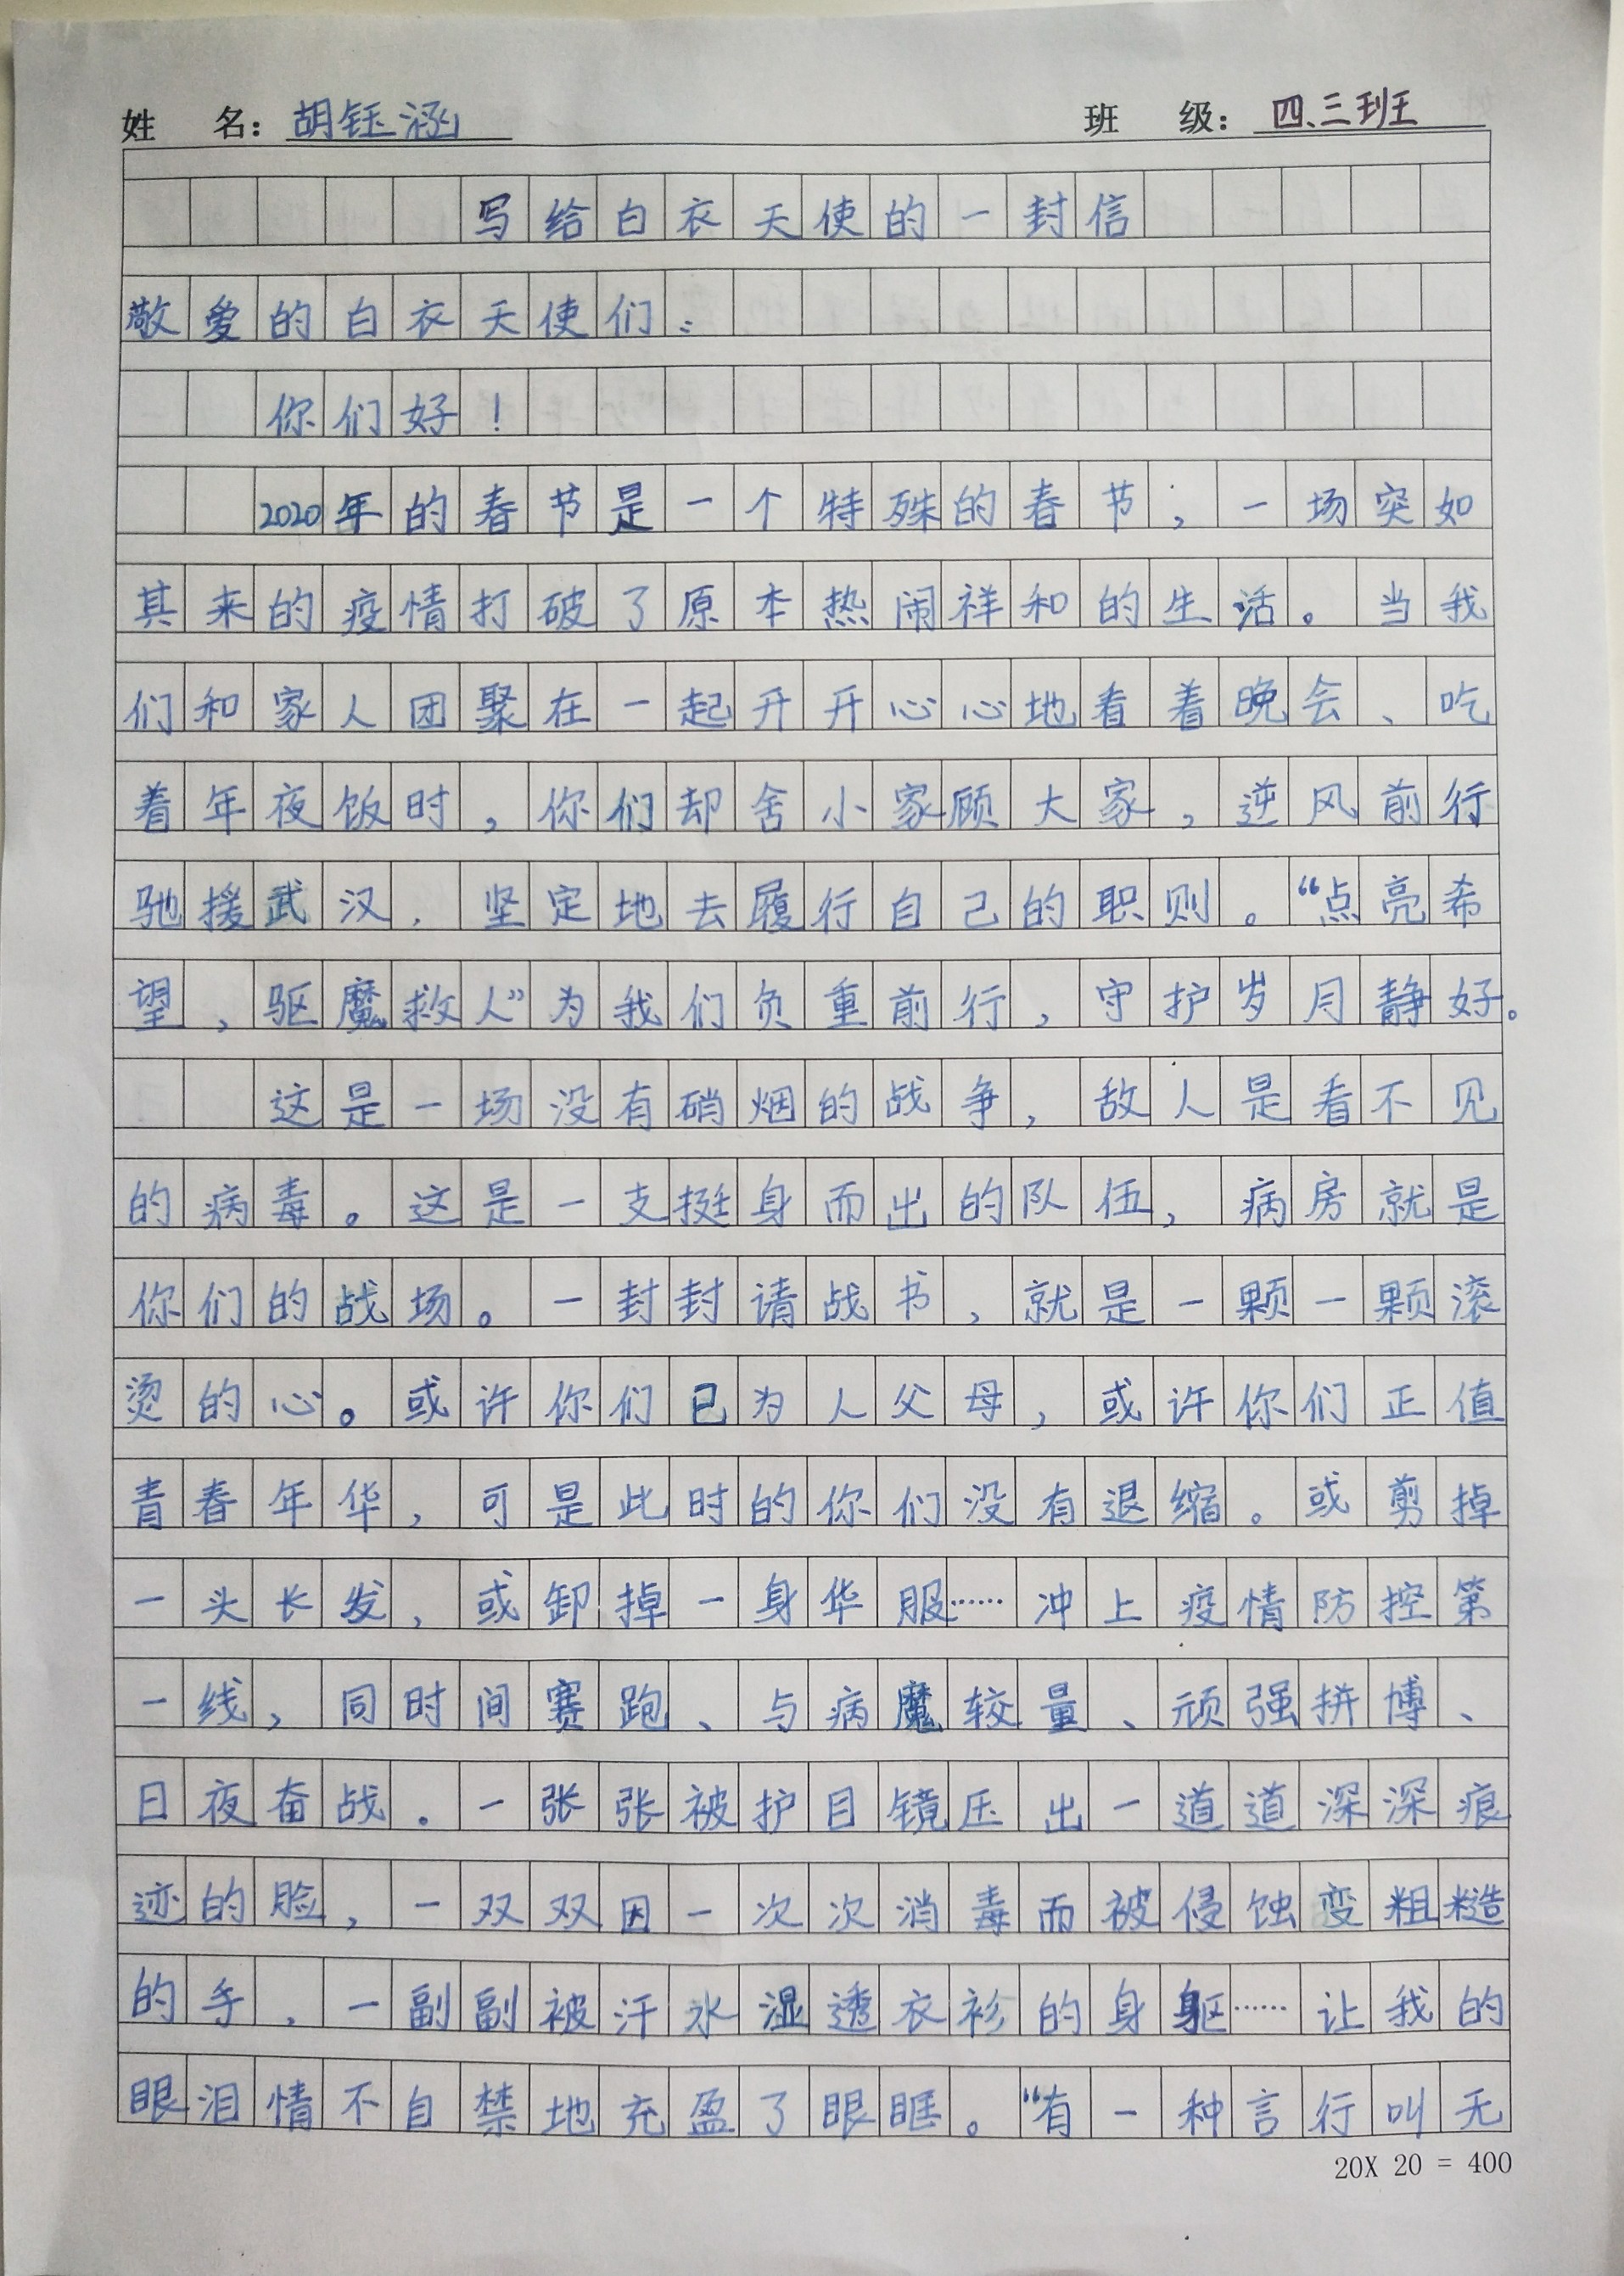 姓 名：胡钰涵 班 级：四.三班
写给白衣天使的一封信
敬爱的白衣天使们：
你们好！
2020年的春节是一个特殊的春节，一场突如
其来的疫情打破了原本热闹祥和的生活。当我
们和家人团聚在一起开开心心地看着晚会、吃
着年夜饭时，你们却舍小家顾大家，逆风前行
驰援武汉，坚定地去履行自己的职则。“点亮希
望，驱魔救人”为我们负重前行，守护岁月静好。
这是一场没有硝烟的战争，敌人是看不见
的病毒。这是一支挺身而出的队伍，病房就是
你们的战场。一封封请战书，就是一颗一颗滚
烫的心。或许你们已为人父母，或许你们正值
青春年华，可是此时的你们没有退缩。或剪掉
一头长发，或卸掉一身华服……冲上疫情防控第
一线，同时间赛跑、与病魔较量、顽强拼博、
日夜奋战。一张张被护目镜压出一道道深深痕
迹的脸，一双双因一次次消毒而被侵蚀变粗糙
的手，一副副被汗水湿透衣衫的身躯……让我的
眼泪情不自禁地充盈了眼眶。“有一种言行叫无
20X 20 = 400